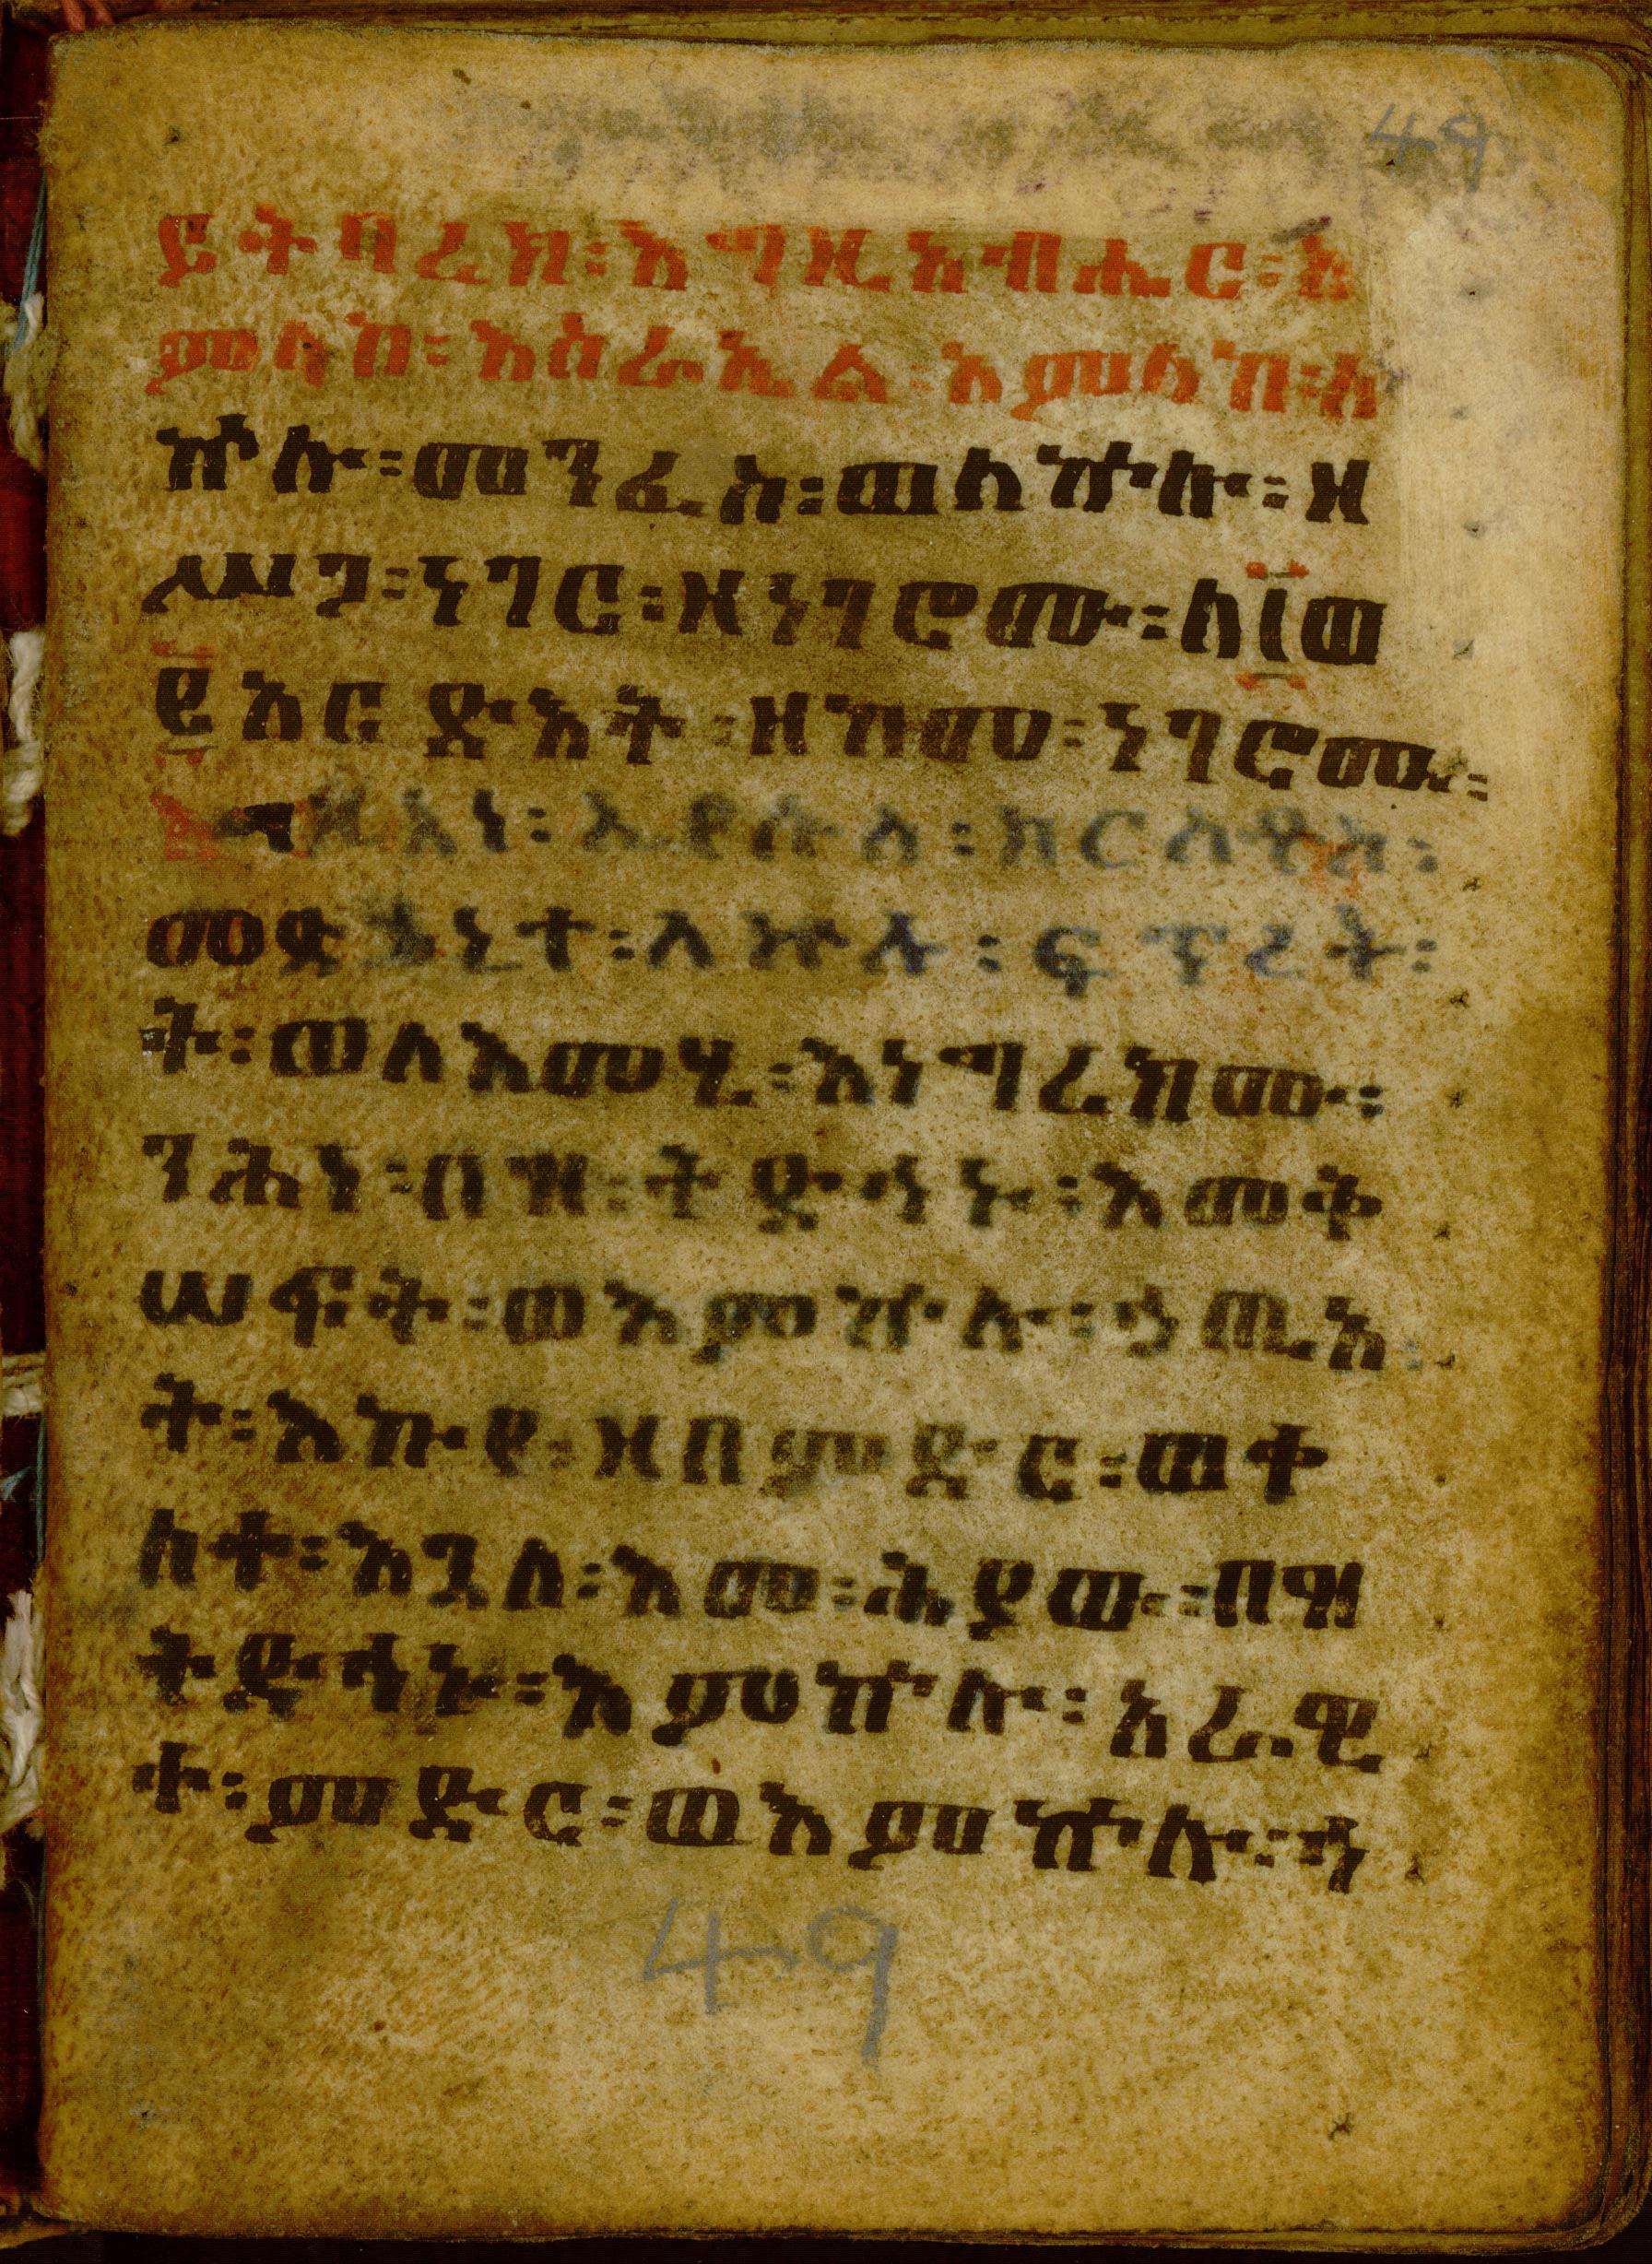 49
ይትባረክ፡እግዚአብሔር፡አ
ምላከ፡እስራኤል፡አምላከ፡ለ
ኵሉ፡መንፈስ፡ወለኵሉ፡ዘ
ሥጋ፡ነገር፡ዘነገሮሙ፡ለ፲ወ
፪አርድእት፡ዘከመ፡ነገሮሙ፡
እግዚእነ፡ኢየሱስ፡ክርስቶስ፡
መድኃኒተ፡ለኵሉ፡ፍጥረት፡
ት፡ወለእመሂ፡እነግረክሙ፡
ንሕነ፡በዝ፡ትድኅኑ፡እመቅ
ሠፍት፡ወእምኵሉ፡ኃጢአ
ት፡እኩየ፡ዘበምድር፡ወቀ
ለተ፡እጓለ፡እመ፡ሕያው፡በዝ
ትድኅኑ፡እምኵሉ፡አራዊ
ተ፡ምድር፡ወእምኵሉ፡ኅ
49